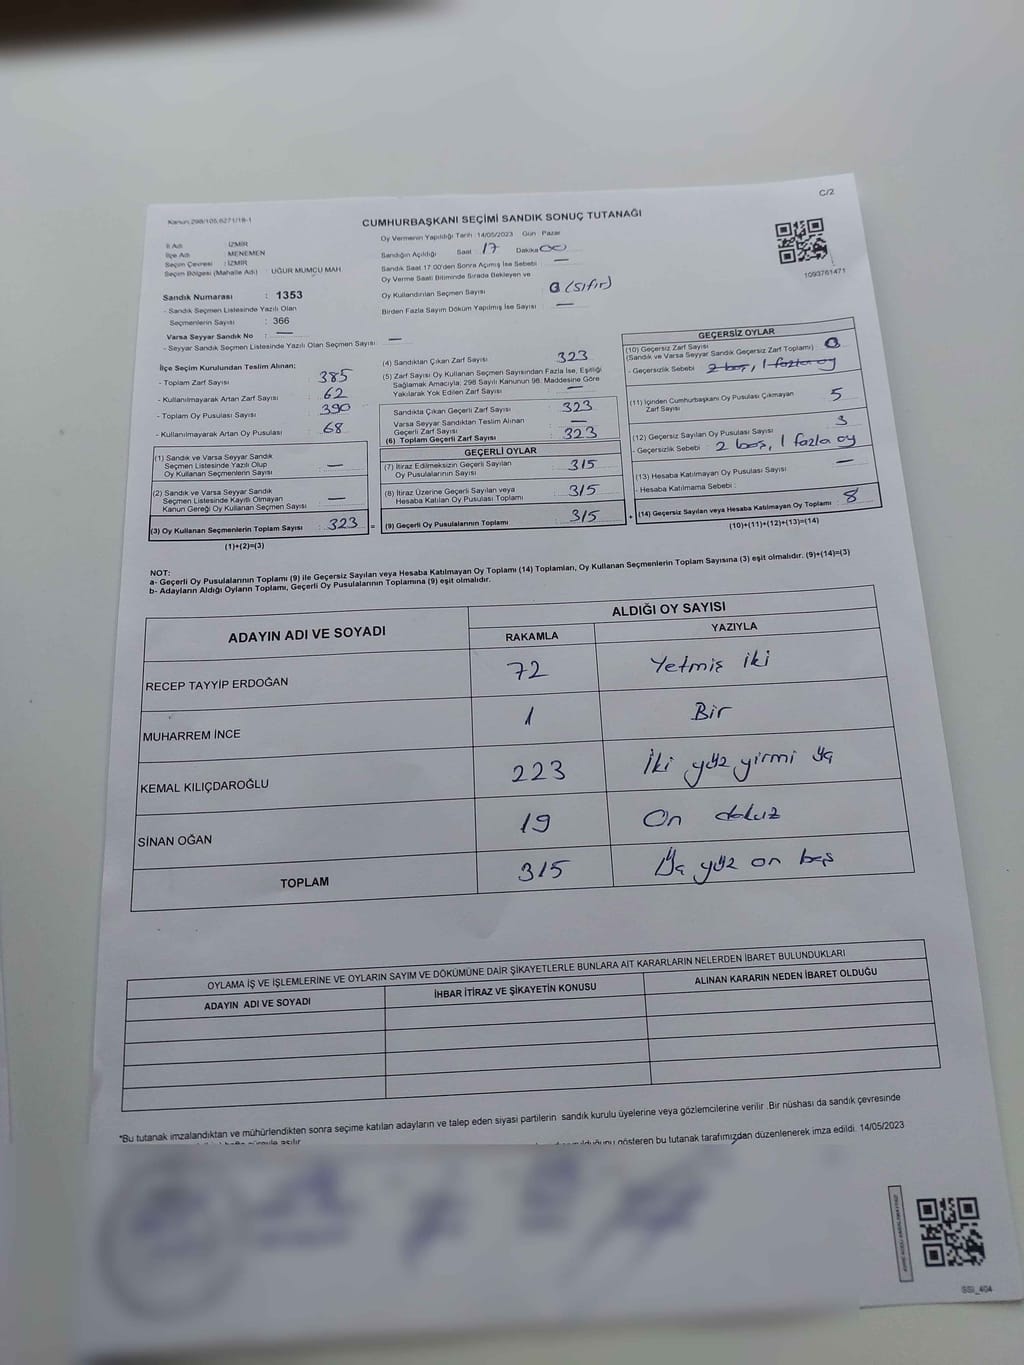 C/2
Kanun:298/105,6271/18-1
CUMHURBAŞKANI SEÇİMİ SANDIK SONUÇ TUTANAĞI
İl Adı : İZMİR
İlçe Adı : MENEMEN
Seçim Çevresi : İZMİR
Seçim Bölgesi (Mahalle Adı) UĞUR MUMCU MAH.
Sandık Numarası : 1353
- Sandık Seçmen Listesinde Yazılı Olan
Seçmenlerin Sayısı : 366
Varsa Seyyar Sandık No : —
- Seyyar Sandık Seçmen Listesinde Yazılı Olan Seçmen Sayısı: —
Oy Vermenin Yapıldığı Tarih :14/05/2023 Gün : Pazar
Sandığın Açıldığı Saat 17 Dakika 00
Sandık Saat 17.00'den Sonra Açımış İse Sebebi : —
Oy Verme Saati Bitiminde Sırada Bekleyen ve
Oy Kullandırılan Seçmen Sayısı 0 (sıfır)
Birden Fazla Sayım Döküm Yapılmış İse Sayısı : —
1093761471
İlçe Seçim Kurulundan Teslim Alınan;
- Toplam Zarf Sayısı : 385
- Kullanılmayarak Artan Zarf Sayısı : 62
- Toplam Oy Pusulası Sayısı : 390
- Kullanılmayarak Artan Oy Pusulası : 68
(1) Sandık ve Varsa Seyyar Sandık
Seçmen Listesinde Yazılı Olup
Oy Kullanan Seçmenlerin Sayısı : —
(2) Sandık ve Varsa Seyyar Sandık
Seçmen Listesinde Kayıtlı Olmayan
Kanun Gereği Oy Kullanan Seçmen Sayısı : —
(3) Oy Kullanan Seçmenlerin Toplam Sayısı : 323 =
(1)+(2)=(3)
(4) Sandıktan Çıkan Zarf Sayısı : 323
(5) Zarf Sayısı Oy Kullanan Seçmen Sayısından Fazla İse, Eşitliği
Sağlamak Amacıyla; 298 Sayılı Kanunun 98. Maddesine Göre
Yakılarak Yok Edilen Zarf Sayısı : —
Sandıkta Çıkan Geçerli Zarf Sayısı : 323
Varsa Seyyar Sandıktan Teslim Alınan
Geçerli Zarf Sayısı : —
(6) Toplam Geçerli Zarf Sayısı : 323
GEÇERLİ OYLAR
(7) İtiraz Edilmeksizin Geçerli Sayılan
Oy Pusulasının Sayısı : 315
(8) İtiraz Üzerine Geçerli Sayılan veya
Hesaba Katılan Oy Pusulası Toplamı : 315
(9) Geçerli Oy Pusulalarının Toplamı : 315 +
GEÇERSİZ OYLAR
(10) Geçersiz Zarf Sayısı
(Sandık ve Varsa Seyyar Sandık Geçersiz Zarf Toplamı) : 0
- Geçersizlik Sebebi : 2 boş, 1 fazla oy
(11) İçinden Cumhurbaşkanı Oy Pusulası Çıkmayan
Zarf Sayısı : 5
(12) Geçersiz Sayılan Oy Pusulası Sayısı : 3
- Geçersizlik Sebebi : 2 boş, 1 fazla oy
(13) Hesaba Katılmayan Oy Pusulası Sayısı : —
- Hesaba Katılmama Sebebi :
(14) Geçersiz Sayılan veya Hesaba Katılmayan Oy Toplamı : 8
(10)+(11)+(12)+(13)=(14)
NOT:
a- Geçerli Oy Pusulalarının Toplamı (9) ile Geçersiz Sayılan veya Hesaba Katılmayan Oy Toplamı (14) Toplamları, Oy Kullanan Seçmenlerin Toplam Sayısına (3) eşit olmalıdır. (9)+(14)=(3)
b- Adayların Aldığı Oyların Toplamı, Geçerli Oy Pusulalarının Toplamına (9) eşit olmalıdır.
ADAYIN ADI VE SOYADI
ALDIĞI OY SAYISI
RAKAMLA YAZIYLA
RECEP TAYYİP ERDOĞAN 72 Yetmiş iki
MUHARREM İNCE 1 Bir
KEMAL KILIÇDAROĞLU 223 İki yüz yirmi üç
SİNAN OĞAN 19 On dokuz
TOPLAM 315 Üç yüz on beş
OYLAMA İŞ VE İŞLEMLERİNE VE OYLARIN SAYIM VE DÖKÜMÜNE DAİR ŞİKAYETLERLE BUNLARA AİT KARARLARIN NELERDEN İBARET BULUNDUKLARI
ADAYIN ADI VE SOYADI İHBAR İTİRAZ VE ŞİKAYETİN KONUSU ALINAN KARARIN NEDEN İBARET OLDUĞU
*Bu tutanak imzalandıktan ve mühürlendikten sonra seçime katılan adayların ve talep eden siyasi partilerin sandık kurulu üyelerine veya gözlemcilerine verilir .Bir nüshası da sandık çevresinde
gösteren bu tutanak tarafımızdan düzenlenerek imza edildi. 14/05/2023
SSI_404